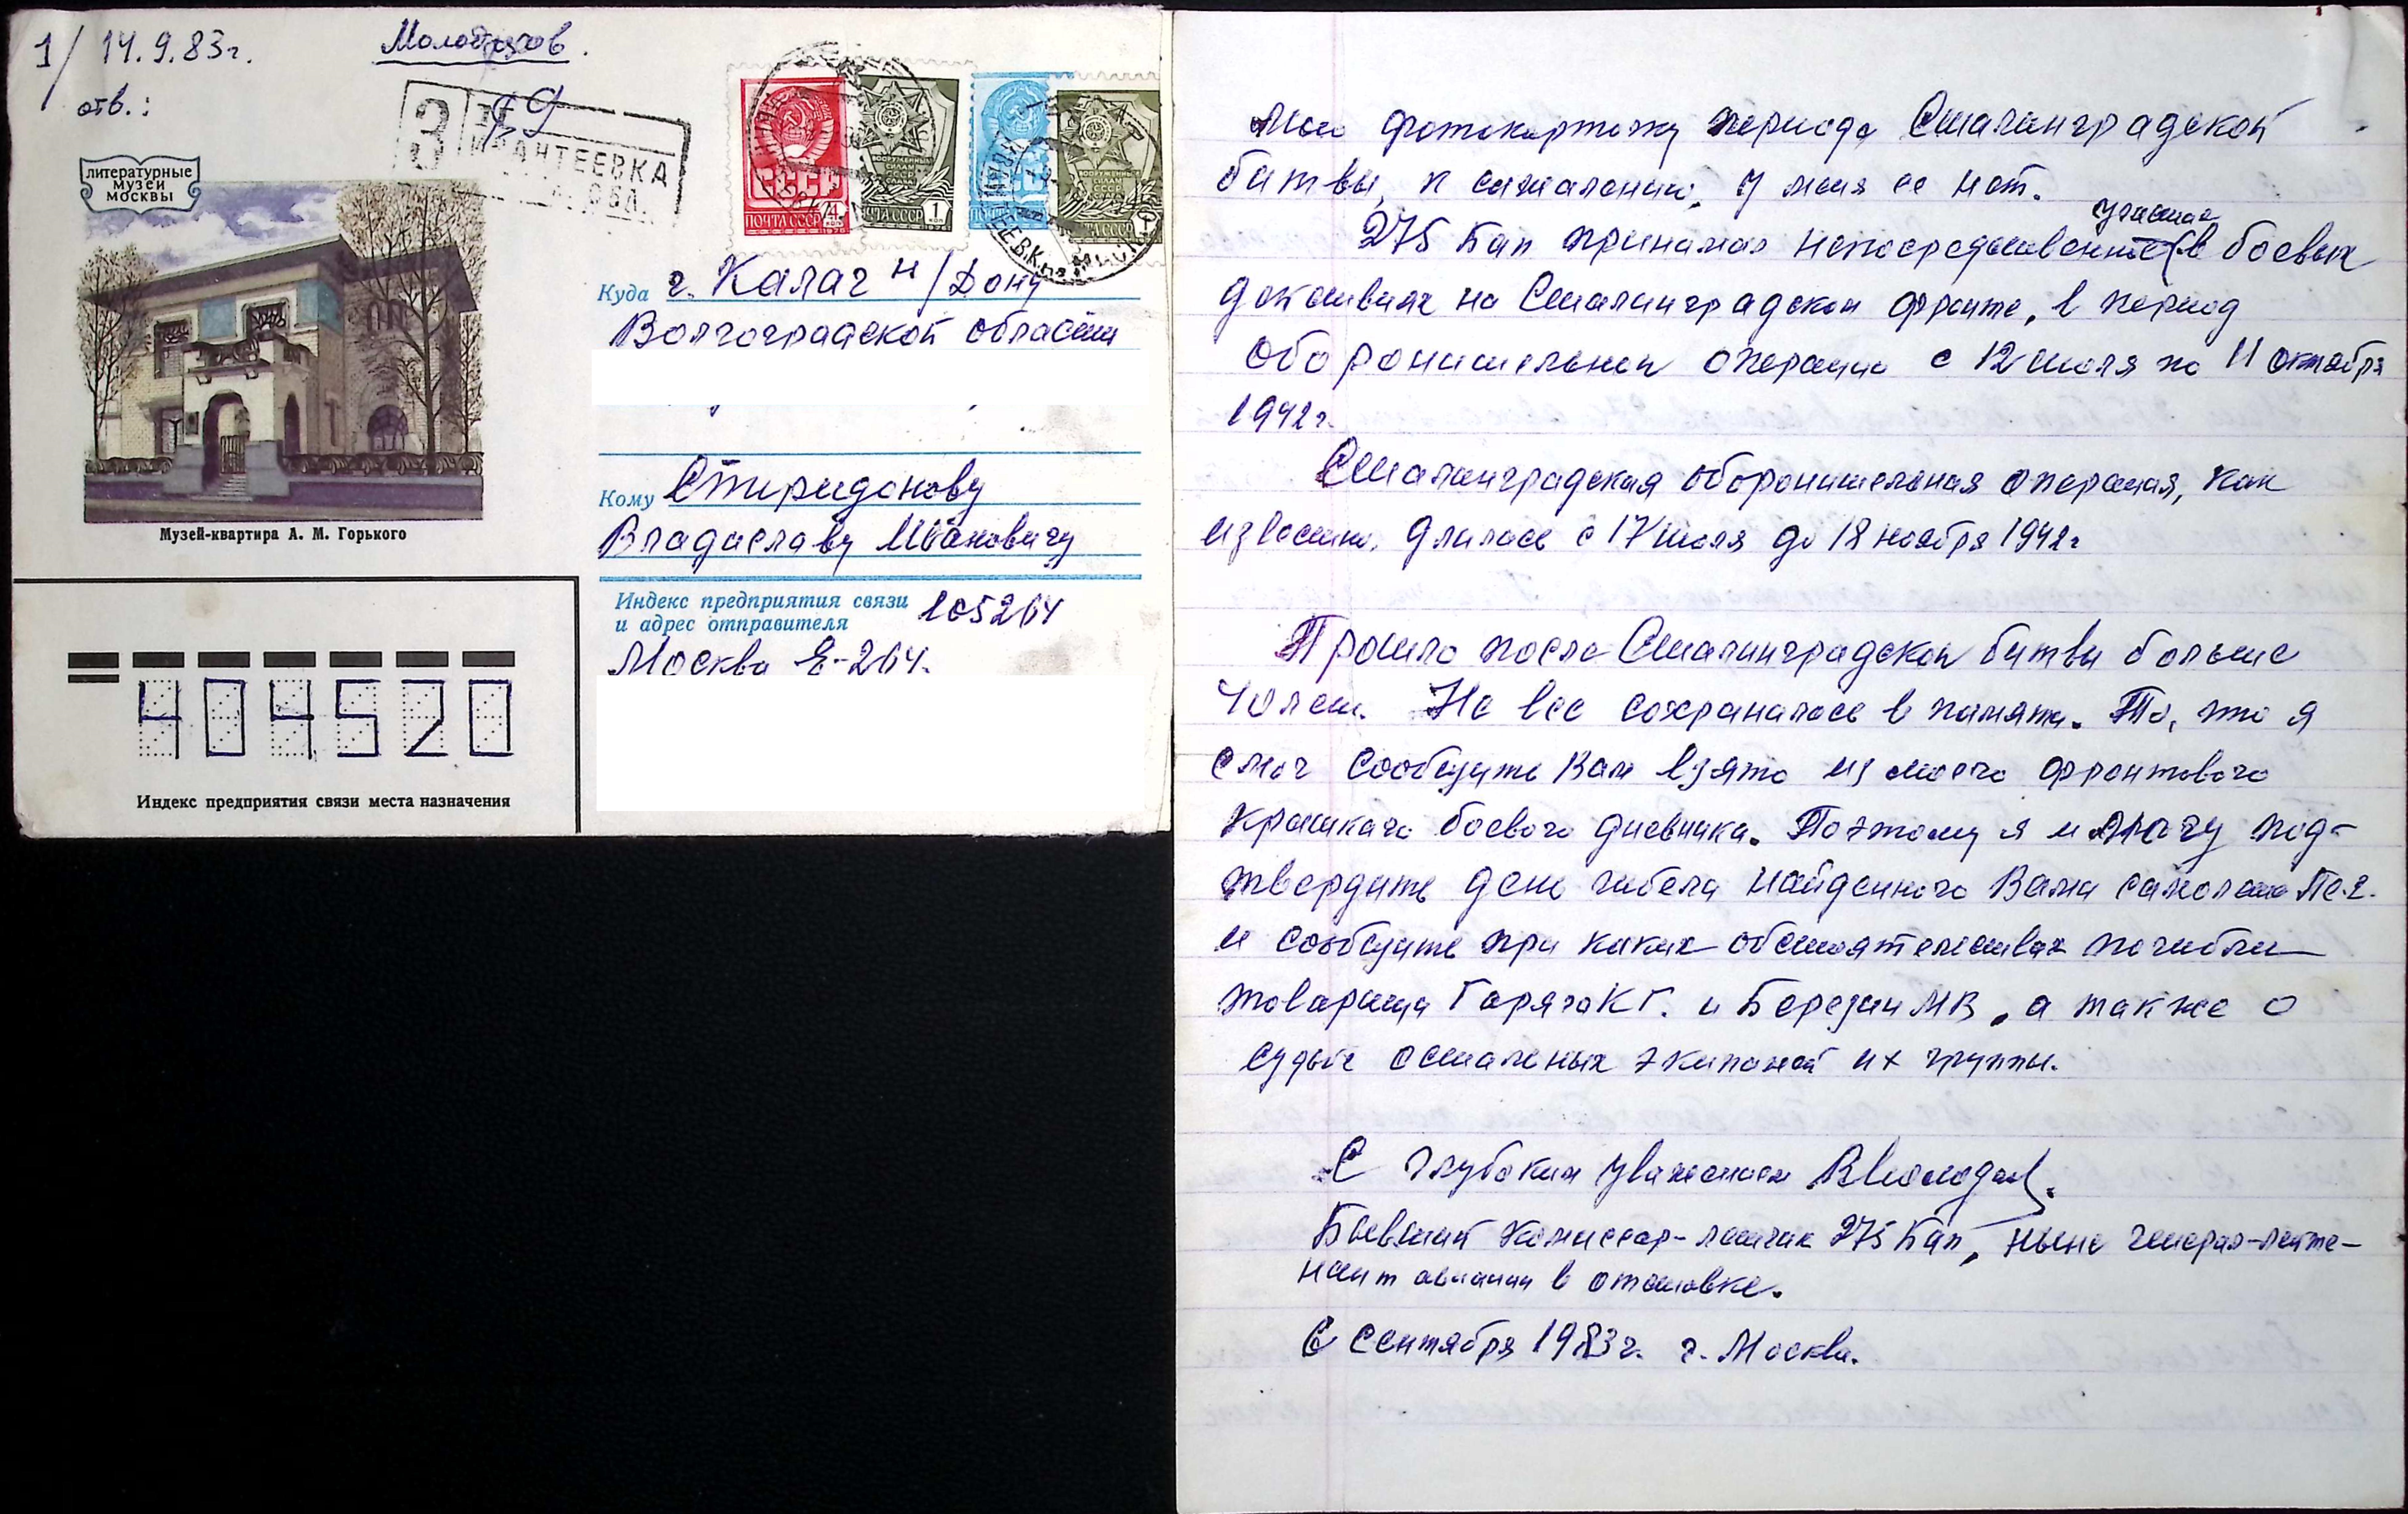 1/ 14.9.83г.
Молодчиков.
отв.:
З
ИВАНТЕЕВКА
ОБЛ.
литературные
музеи
москвы
СССР
ПОЧТА СССР
ВООРУЖЕННЫЕ
СИЛЫ
СССР
1 КОП
Музей-квартира А. М. Горького
Куда г. Калач н/Дону
Волгоградской области
Кому Спиридонову
Владиславу Ивановичу
Индекс предприятия связи 105264
и адрес отправителя
Москва Е-264.
404520
Индекс предприятия связи места назначения
Мою фотокарточку периода Сталинградской
битвы, к сожалению, у меня ее нет.
участие
275 бап принимал непосредственное в боевых
действиях на Сталинградском фронте, в период
оборонительной операции с 12 июля по 11 октября
1942г.
Сталинградская оборонительная операция, как
известно, длилась с 17 июля до 18 ноября 1942г
Прошло после Сталинградской битвы больше
40 лет. Не все сохранилось в памяти. То, что я
смог сообщить Вам взято из моего фронтового
краткого боевого дневника. Поэтому я и могу под-
твердить день гибели найденного Вами самолета Пе-2.
и сообщить при каких обстоятельствах погибли
товарищи Горяго К Г. и Березин МВ, а также о
судьбе остальных экипажей их группы.
С глубоким уважением
Бывший комиссар-летчик 275 бап, ныне генерал-лейте-
нант авиации в отставке.
6 сентября 1983г. г. Москва.